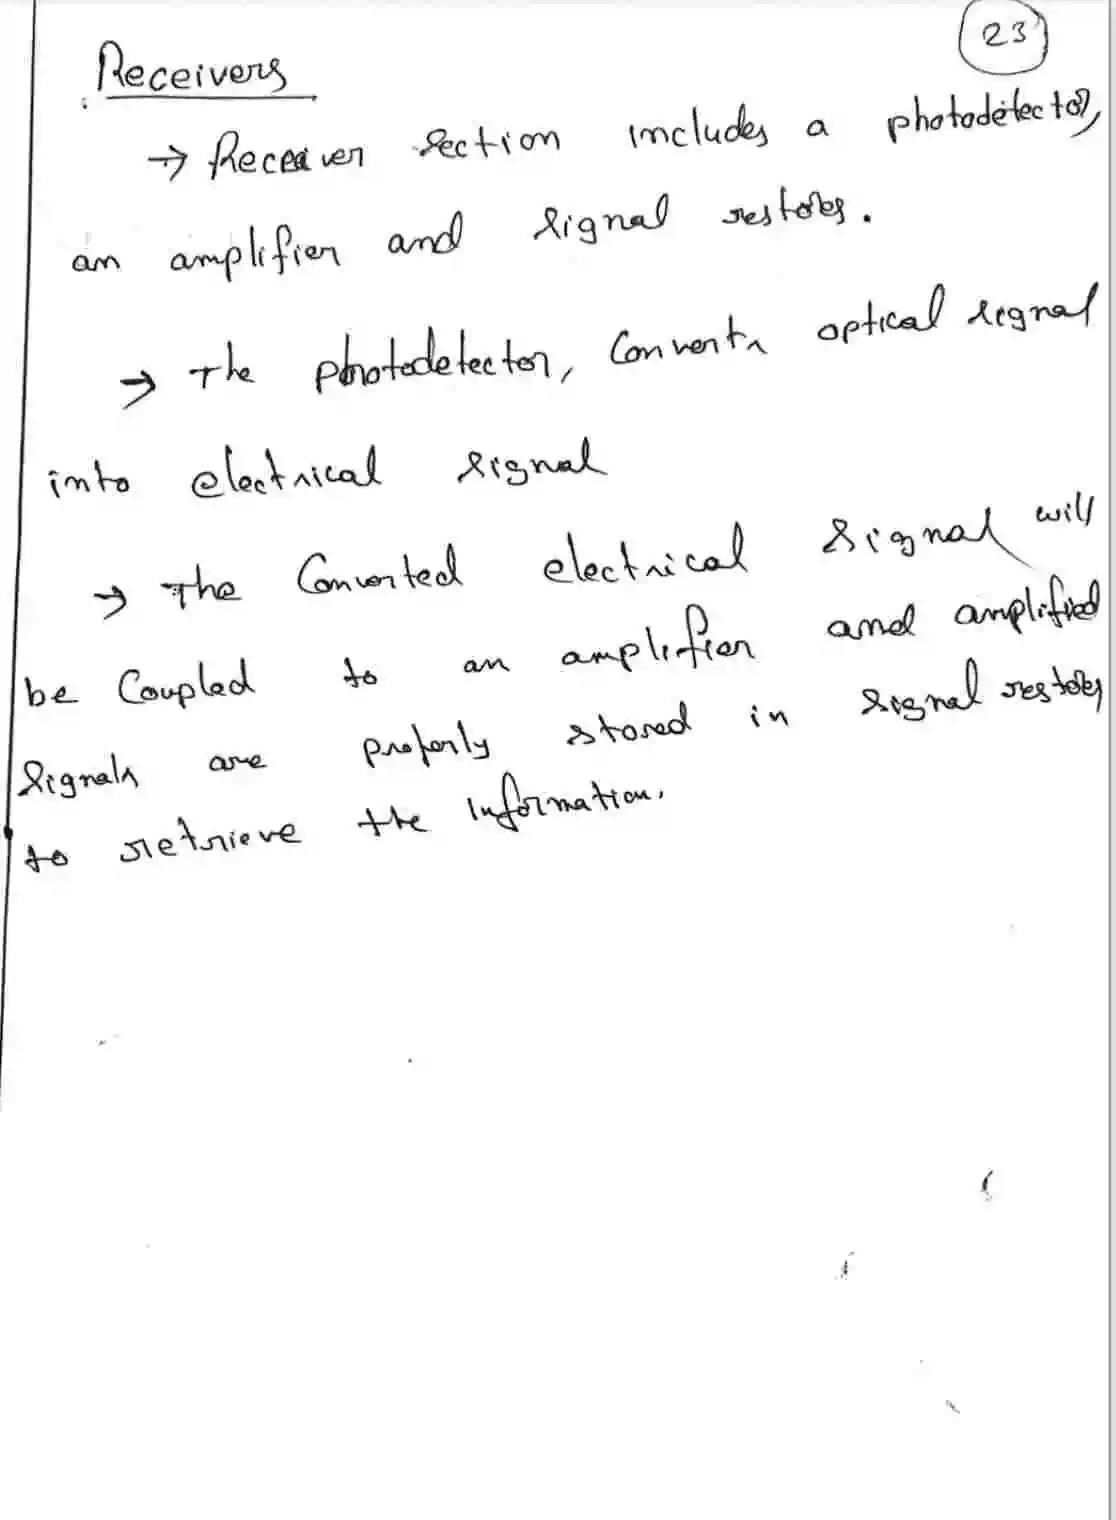 23
Receivers
→ Receiver section includes a photodetector,
an amplifier and signal restorer.
→ The photodetector, converts optical signal
into electrical signal
→ The Converted electrical signal will
be Coupled to an amplifier and amplified
signals are properly stored in signal restorer
to retrieve the information.